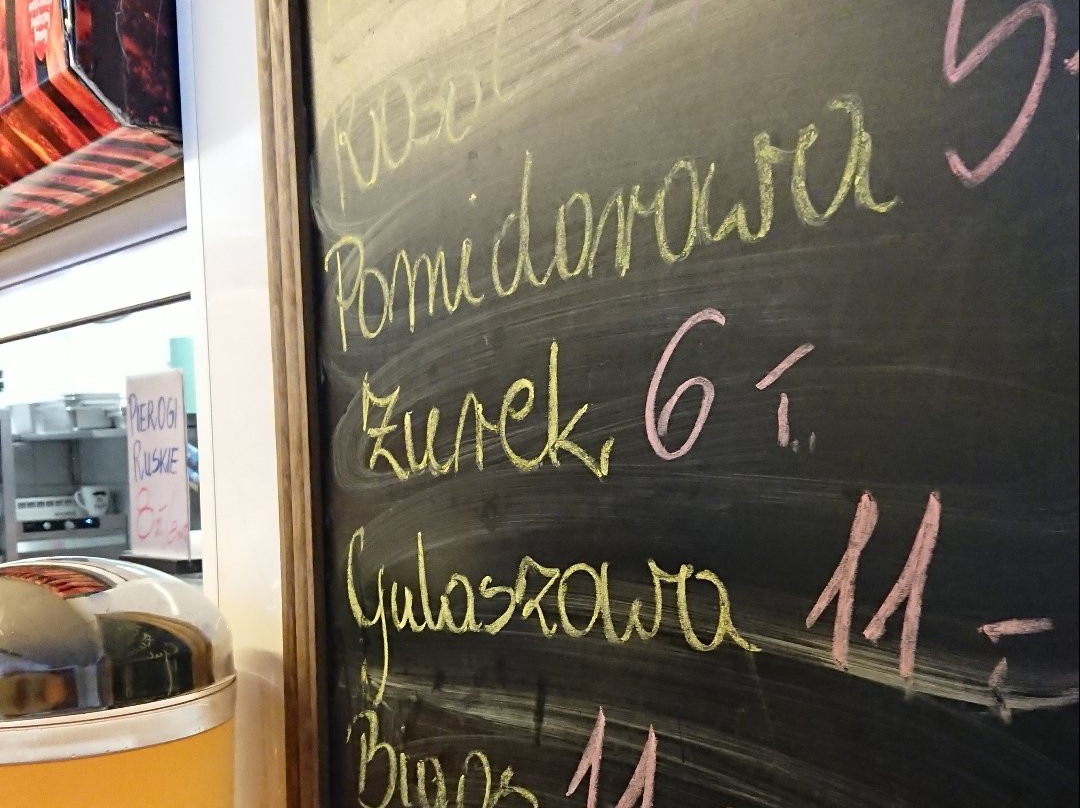 Rosół
Pomidorowa 5
Żurek 6,-
Gulaszowa 11,-
Bigos 11
PIEROGI
RUSKIE
8